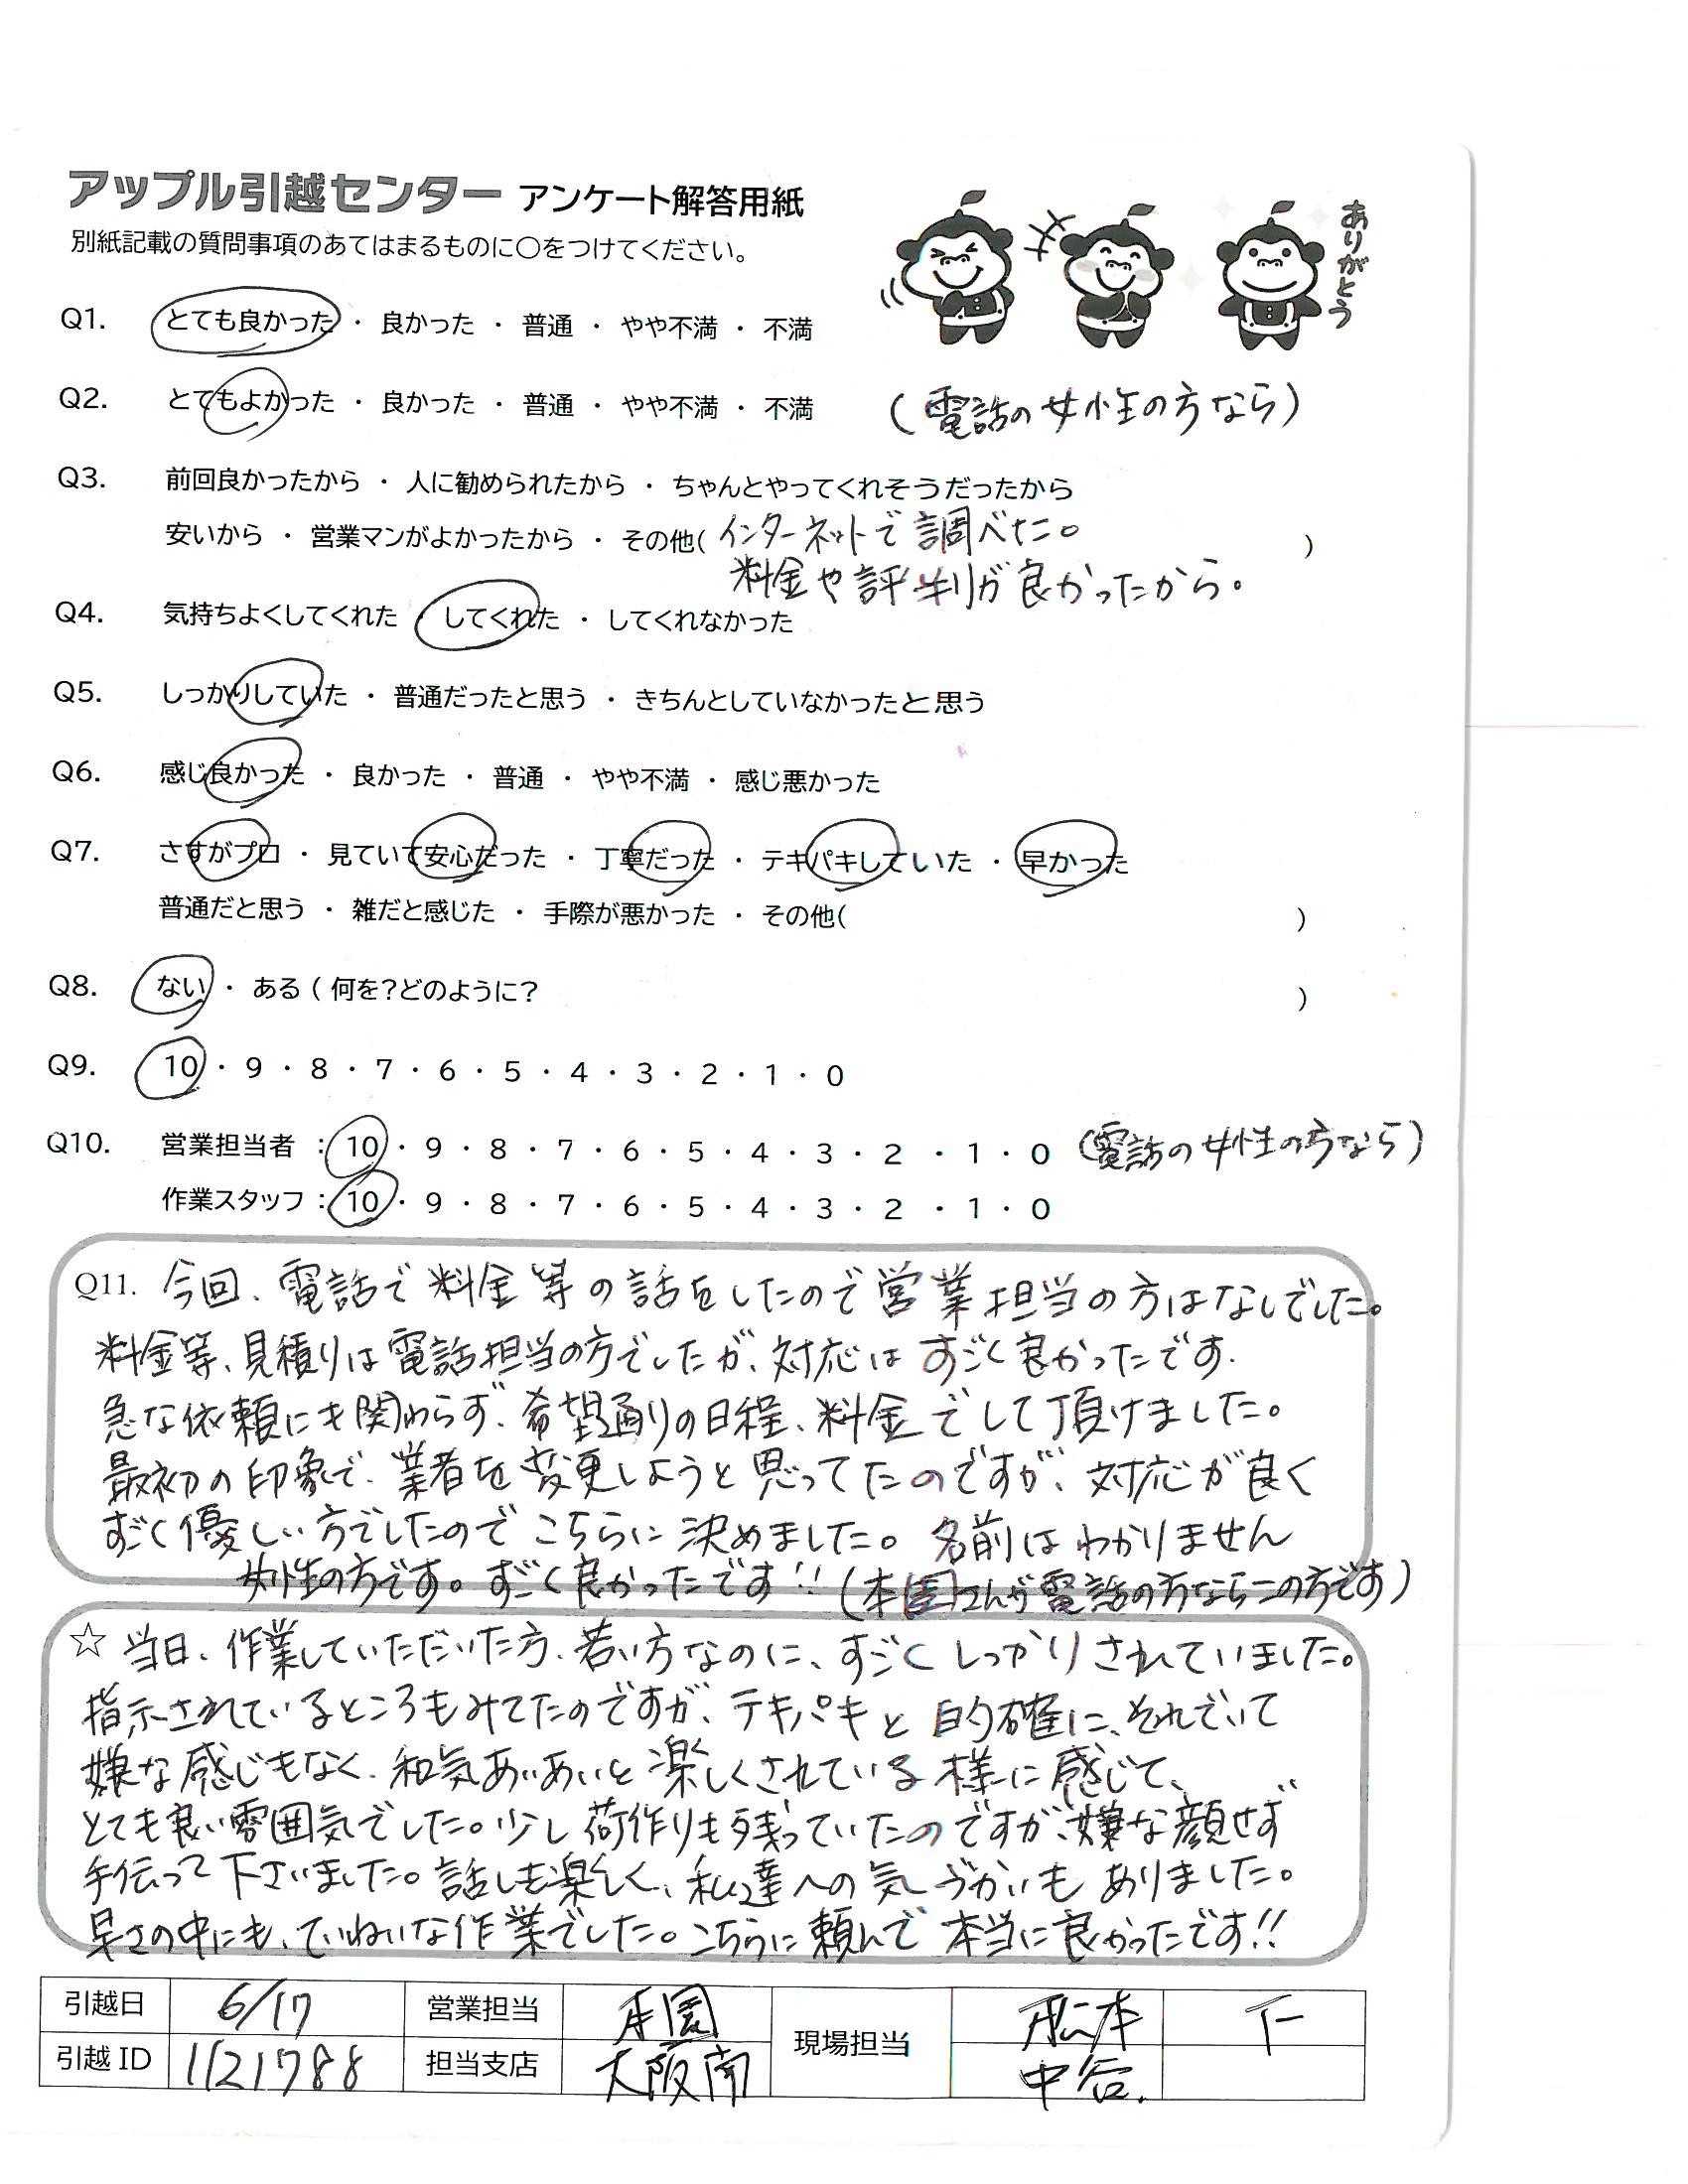 アップル引越センター アンケート解答用紙
別紙記載の質問事項のあてはまるものに○をつけてください。
ありがとう
Q1. とても良かった ・ 良かった ・ 普通 ・ やや不満 ・ 不満
Q2. とてもよかった ・ 良かった ・ 普通 ・ やや不満 ・ 不満 (電話の女性の方なら)
Q3. 前回良かったから ・ 人に勧められたから ・ ちゃんとやってくれそうだったから
安いから ・ 営業マンがよかったから ・ その他( インターネットで調べた。 )
料金や評判が良かったから。
Q4. 気持ちよくしてくれた ・ してくれた ・ してくれなかった
Q5. しっかりしていた ・ 普通だったと思う ・ きちんとしていなかったと思う
Q6. 感じ良かった ・ 良かった ・ 普通 ・ やや不満 ・ 感じ悪かった
Q7. さすがプロ ・ 見ていて安心だった ・ 丁寧だった ・ テキパキしていた ・ 早かった
普通だと思う ・ 雑だと感じた ・ 手際が悪かった ・ その他( )
Q8. ない ・ ある ( 何を?どのように? )
Q9. 10 ・ 9 ・ 8 ・ 7 ・ 6 ・ 5 ・ 4 ・ 3 ・ 2 ・ 1 ・ 0
Q10. 営業担当者 : 10 ・ 9 ・ 8 ・ 7 ・ 6 ・ 5 ・ 4 ・ 3 ・ 2 ・ 1 ・ 0 (電話の女性の方なら)
作業スタッフ : 10 ・ 9 ・ 8 ・ 7 ・ 6 ・ 5 ・ 4 ・ 3 ・ 2 ・ 1 ・ 0
Q11. 今回、電話で料金等の話をしたので営業担当の方はなしでした。
料金等、見積りは電話担当の方でしたが、対応はすごく良かったです.
急な依頼にも関わらず、希望通りの日程、料金でして頂けました。
最初の印象で、業者を変更しようと思ってたのですが、対応が良く
すごく優しい方でしたのでこちらに決めました。名前はわかりません
女性の方です。すごく良かったです!! (本園さんが電話の方ならこの方です)
☆ 当日、作業していただいた方、若い方なのに、すごくしっかりされていました。
指示されているところもみてたのですが、テキパキと的確に、それでいて
嫌な感じもなく、和気あいあいと楽しくされている様に感じて、
とても良い雰囲気でした。少し荷作りも残っていたのですが、嫌な顔せず
手伝って下さいました。話しも楽しく、私達への気づかいもありました。
早さの中にも、ていねいな作業でした。こちらに頼んで本当に良かったです!!
引越日 6/17 営業担当 本園 現場担当 松本 下
引越ID 1121788 担当支店 大阪南 中谷.